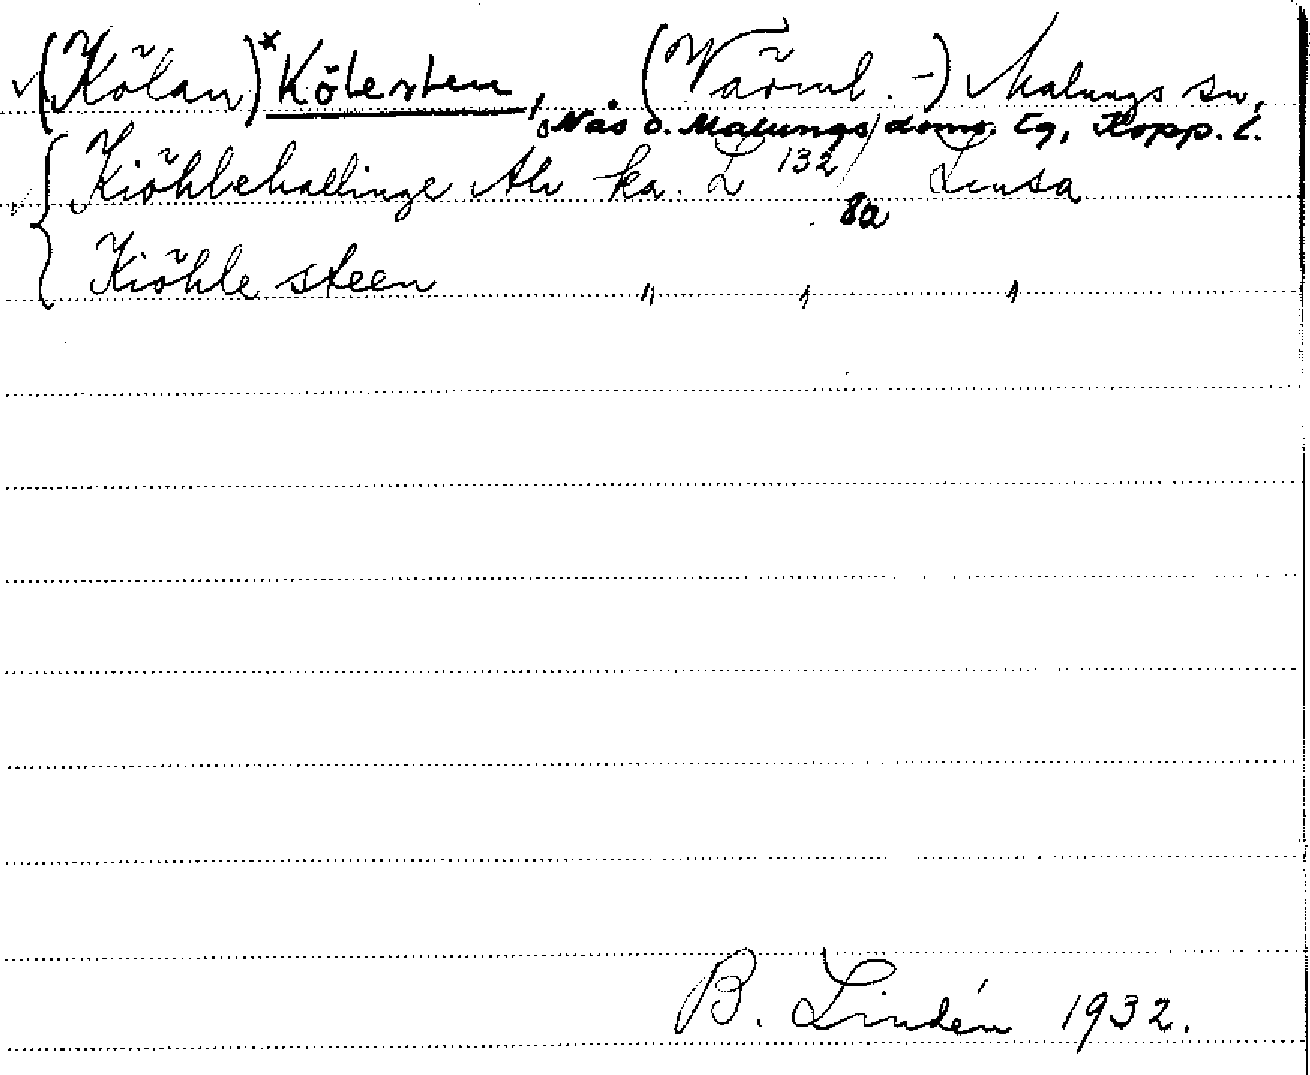 (Kölan)* Kölesten, (Värml. -) Malungs sn,
Nås o. Malungs doms. tg, Kopp. l.
Kiöhlehallinge Al ka. L 132/ Linsa
8a
Kiöhle steen " " "
B. Lindén 1932.